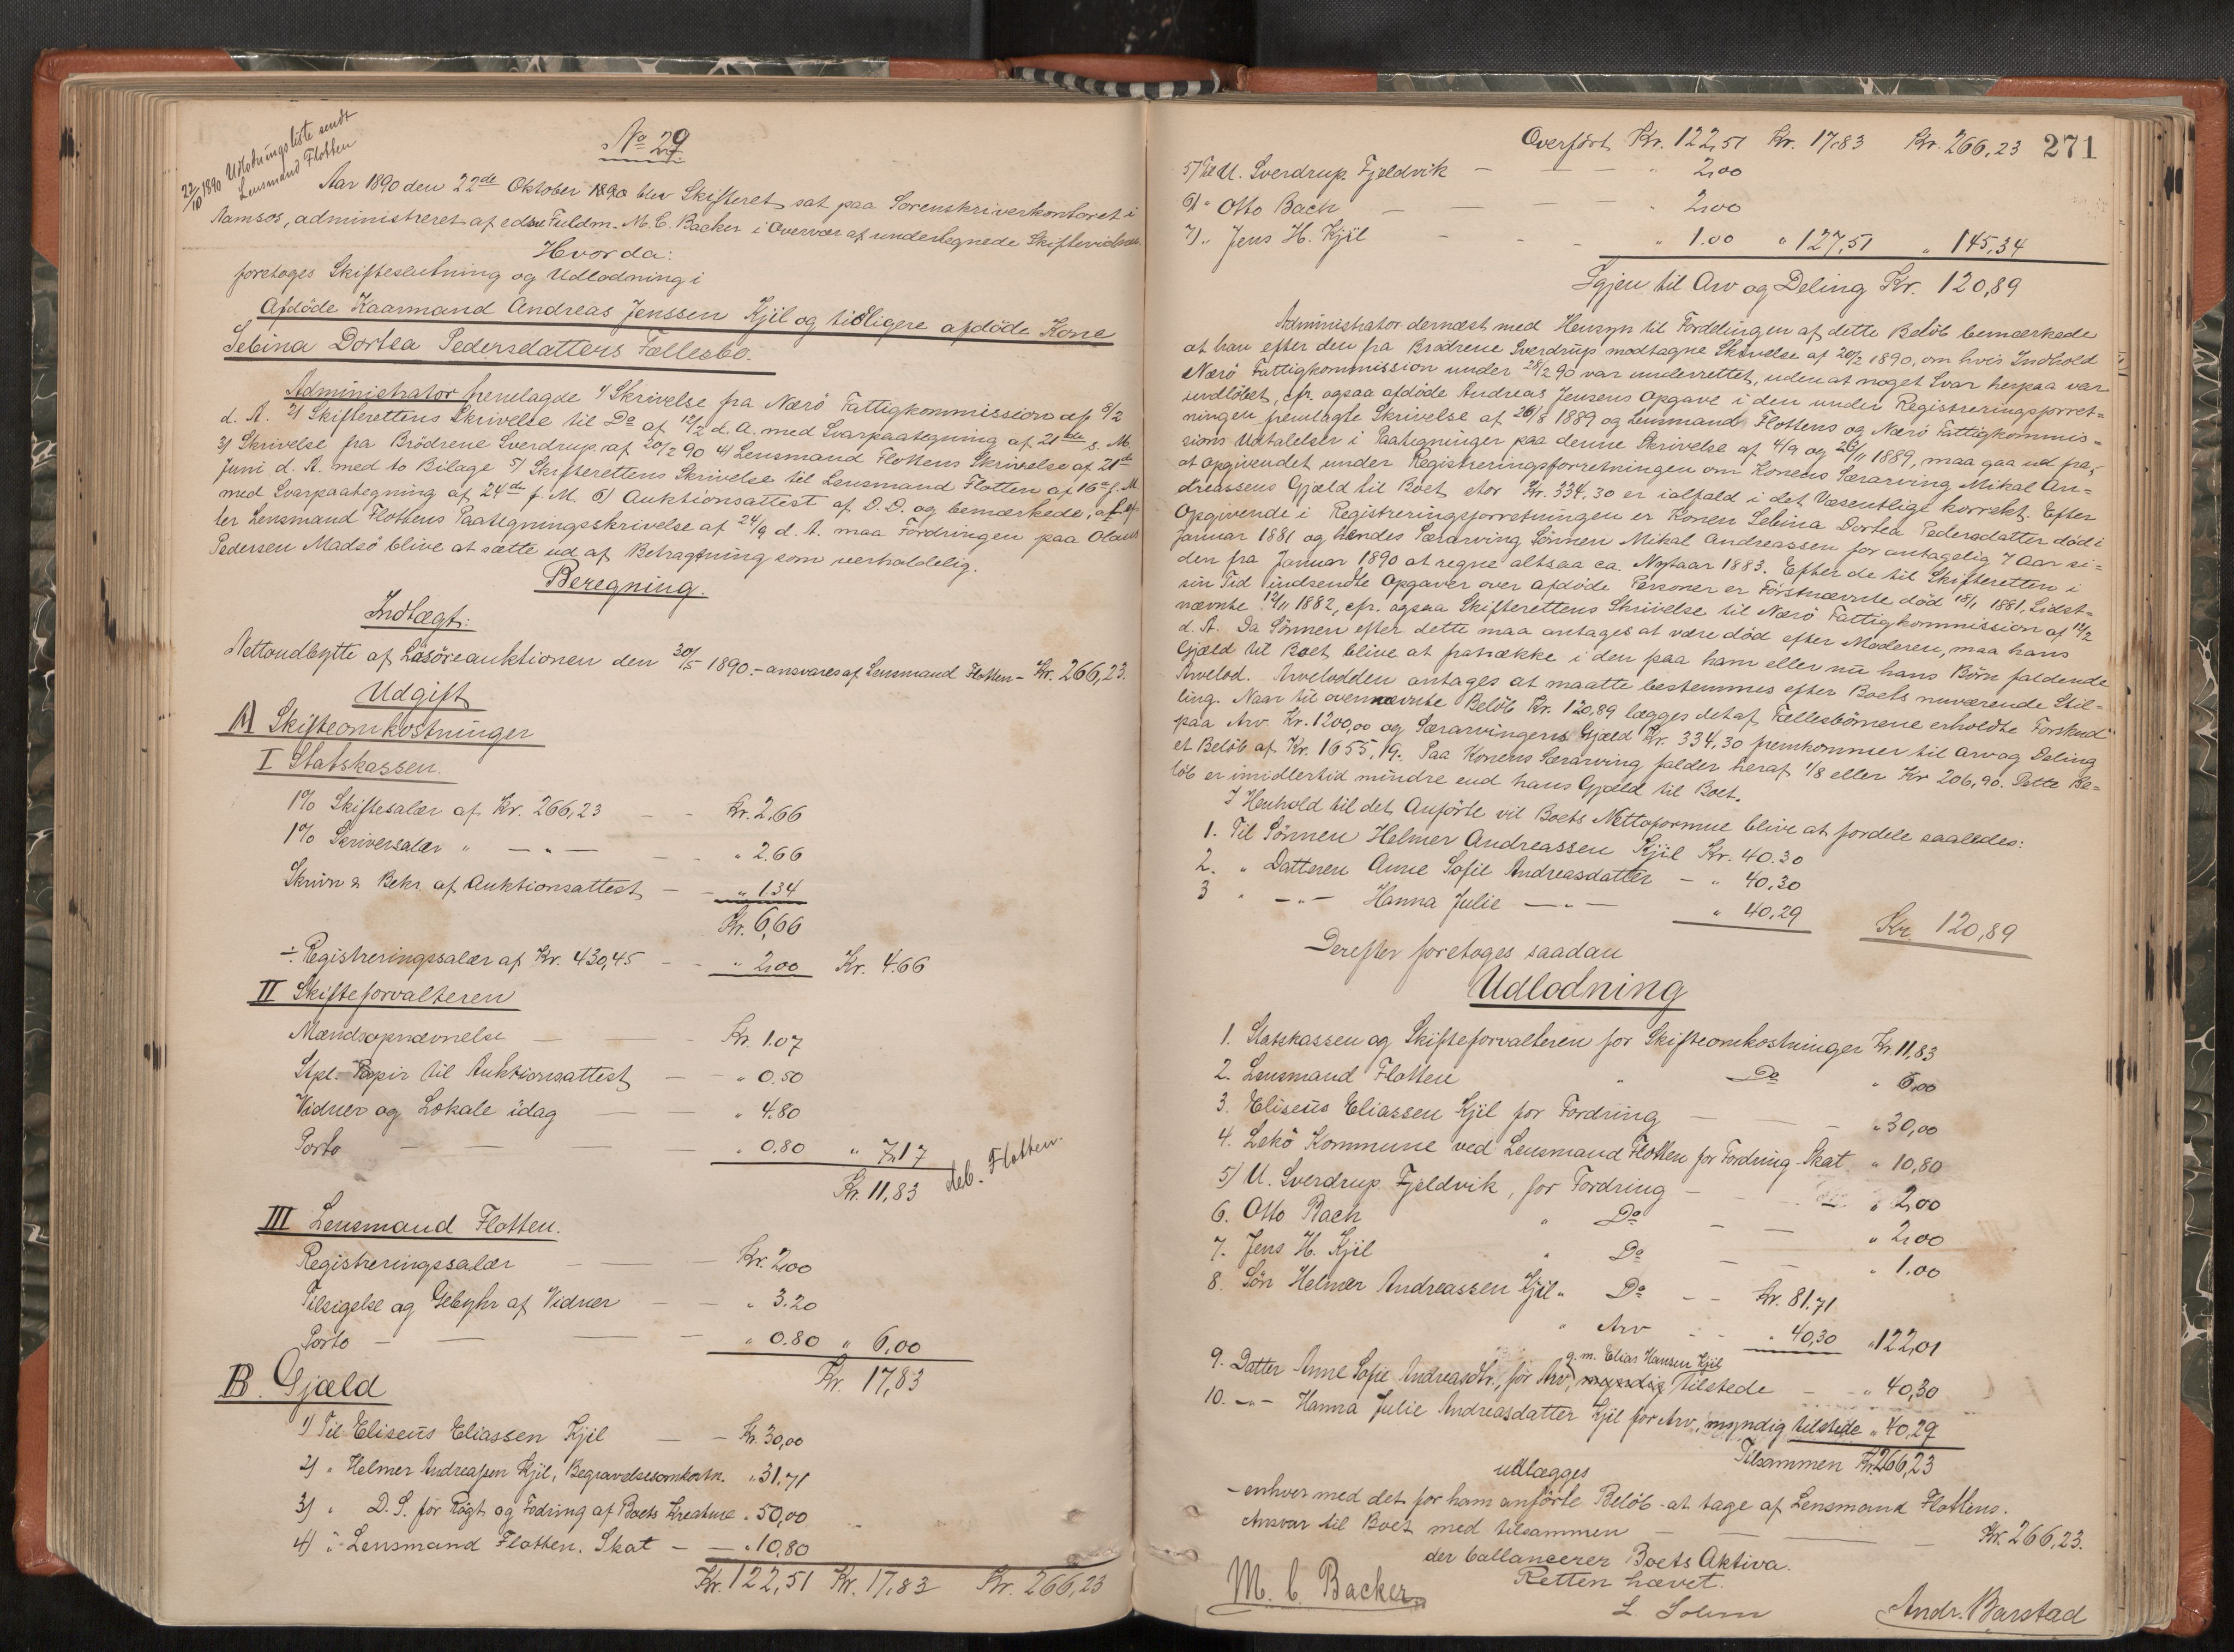 22/10 1890 Udlodningsliste sendt
Lensmand Flotten
No 29
Aar 1890 den 22de Oktober 1890 blev Skifteret sat paa Sorenskriverkontoret i
Namsos, administreret af edsv. Fuldm. M. C. Backer i Overvær af undertegnede Skiftevidner.
Hvorda:
foretoges Skifteslutning og Udlodning i
Afdöde Kaarmand Andreas Jenssen Kjil og tidligere afdöde Kone
Sebina Dortea Pedersdatters Fællesbo.
Administrator fremlagde 1) Skrivelse fra Nærö Fattigkommission af 8/2
d. A. 2) Skifterettens Skrivelse til Do af 12/2 d. A. med Svarpaategning af 21de s. M.
3) Skrivelse fra Brödrene Sverdrup af 20/2 90 4) Lensmand Flottens Skrivelse af 21de
Juni d. A. med to Bilage 5) Skifterettens Skrivelse til Lensmand Flotten af 16de f. M.
med Svarpaategning af 24de f. M. 6) Auktionsattest af D. D. og bemærkede, at ef-
ter Lensmand Flottens Paategningsskrivelse af 24/9 d. A. maa Fordringen paa Olaus
Pedersen Madsö blive at sætte ud af Betragtning som uerholdelig.
Beregning.
Indlægt:
Nettoudbytte af Lösöreauktionen den 30/5 1890 - ansvares af Lensmand Flotten - Kr. 266,23.
Udgift
A) Skifteomkostninger
I Statskassen.
1% Skiftesalær af Kr. 266,23 - - Kr. 2.66
1% Skriversalær " - " - - - " 2.66
Skrivn & Bekr. af Auktionsattest - - " 1.34
Kr. 6,66
÷ Registreringssalær af Kr. 430,45 - - " 2,00 Kr. 4.66
II Skifteforvalteren
Mændsopnævnelse - - Kr. 1.07
Stpl. Papir til Auktionsattest - - " 0.50
Vidner og Lokale idag - - " 4.80
Porto - - - - " 0.80 " 7,17
Kr. 11,83 deb. Flotten.
III Lensmand Flotten.
Registreringssalær - - Kr. 2,00
Tilsigelse og Gebyhr af Vidner - - " 3.20
Porto - - - - " 0.80 " 6,00
Kr. 17,83
B. Gjæld
1) Til Eliseüs Eliassen Kjil - - Kr. 30,00
2) " Helmer Andreassen Kjil, Begravelsesomkostn. " 31.71
3) " D. S. for Rögt og Fodring af Boets Kreature " 50,00
4) " Lensmand Flotten. Skat - - " 10,80
Kr. 122,51 Kr. 17,83 Kr. 266,23
Overfört Kr. 122,51 Kr. 17,83 Kr. 266,23 271
5) Til U. Sverdrup Fjeldvik - - - " 2,00
6) " Otto Bach - - - - " 2,00
7) " Jens H. Kjil - - - " 1.00 " 127,51 " 145,34
Igjen til Arv og Deling Kr. 120,89
Administrator dernæst med Hensyn til Fordelingen af dette Belöb bemærkede
at han efter den fra Brödrene Sverdrup modtagne Skrivelse af 20/2 1890, om hvis Indhold
Nærö Fattigkommission under 28/2 90 var underrettet, uden at noget Svar herpaa var
indlöbet, cfr. ogsaa afdöde Andreas Jensens Opgave i den under Registreringsforret-
ningen fremlagte Skrivelse af 26/8 1889 og Lensmand Flottens og Nærö Fattigkommis-
sions Udtalelser i Paategninger paa denne Skrivelse af 4/9 og 26/11 1889, maa gaa ud fra,
at Opgivendet under Registreringsforretningen om Konens Særarving Mikal An-
dreassens Gjæld til Boet stor Kr. 334,30 er ialfald i det Væsentlige korrekt. Efter
Opgivende i Registreringsforretningen er Konen Sebina Dortea Pedersdatter död i
Januar 1881 og hendes Særarving Sönnen Mikal Andreassen for antagelig 7 Aar si-
den fra Januar 1890 at regne altsaa ca. Nytaar 1883. Efter de til Skifteretten i
sin Tid indsendte Opgaver over afdöde Personer er Förstnævnte död 18/1 1881. Sidst-
nævnte 12/11 1882, cfr. ogsaa Skifterettens Skrivelse til Nærö Fattigkommission af 12/2
d. A. Da Sönnen efter dette maa antages at være död efter Moderen, maa hans
Gjæld til Boet blive at fratrække i den paa ham eller nu hans Börn faldende
Arvelod. Arvelodden antages at maatte bestemmes efter Boets nuværende Stil-
ling. Naar til ovennævnte Belöb Kr. 120,89 lægges det af Fællesbörnene erholdte Forskud
paa Arv. Kr. 1200,00 og Særarvingens Gjæld Kr. 334,30 fremkommer til Arv og Deling
et Belöb af Kr. 1655,19. Paa Konens Særarving falder heraf 1/8 eller Kr 206,90. Dette Be-
löb er imidlertid mindre end hans Gjæld til Boet.
I Henhold til det Anförte vil Boets Nettoformue blive at fordele saaledes:
1. Til Sönnen Helmer Andreassen Kjil Kr. 40.30
2. " Datteren Anne Sofie Andreasdatter - " 40,30
3 " - " - Hanna Julie - " - " 40,29 Kr. 120,89
Derefter foretoges saadan
Udlodning
1. Statskassen og Skifteforvalteren for Skifteomkostninger Kr. 11,83
2. Lensmand Flotten " Do " 6,00
3. Eliseüs Eliassen Kjil for Fordring - - " 30,00
4. Lekö Kommune ved Lensmand Flotten for Fordring - Skat " 10,80
5) U. Sverdrup Fjeldvik, for Fordring - - " 2,00
6. Otto Bach " Do - - " 2,00
7. Jens H. Kjil " Do - - " 1.00
8. Sön Helmer Andreassen Kjil " Do - - Kr. 81.71
" Arv - - " 40,30 " 122,01
g. m. Elias Hansen Kjil
9. Datter Anne Sofie Andreasdtr., for Arv, myndig tilstede - - " 40,30
10. - " - Hanna Julie Andreasdatter Kjil for Arv, myndig tilstede " 40,29
Tilsammen Kr. 266,23
udlægges
- enhver med det for ham anförte Belöb - at tage af Lensmand Flottens
Ansvar til Boet med tilsammen - - - Kr. 266,23.
der ballancerer Boets Aktiva.
Retten hævet.
M. C. Backer
L. Solum
Andr. Barstad